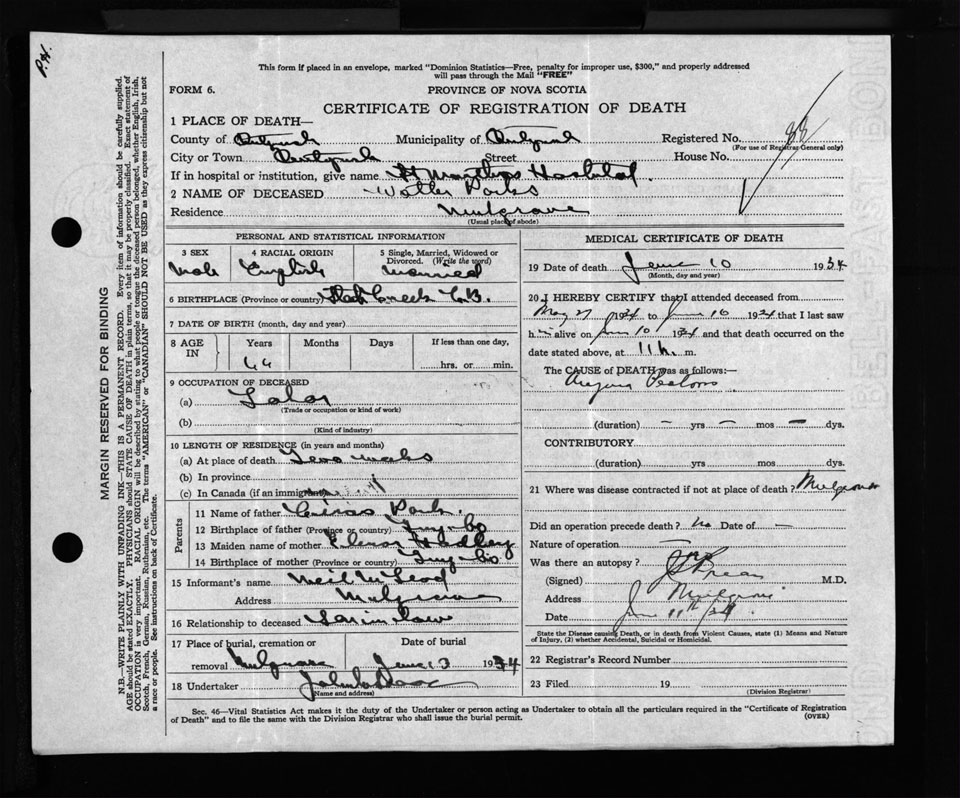 P.H.
This form if placed in an envelope, marked "Dominion Statistics—Free, penalty for improper use, $300," and properly addressed
will pass through the Mail "FREE"
FORM 6.
PROVINCE OF NOVA SCOTIA
CERTIFICATE OF REGISTRATION OF DEATH
1 PLACE OF DEATH—
County of Antigonish Municipality of Antigonish Registered No. 88
(For use of Registrar General only)
City or Town Antigonish Street House No.
If in hospital or institution, give name St Marthas Hospital.
2 NAME OF DECEASED Walter Parks
Residence Mulgrave
(Usual place of abode)
PERSONAL AND STATISTICAL INFORMATION
3 SEX 4 RACIAL ORIGIN 5 Single, Married, Widowed or
Divorced. (Write the word)
Male English Married
6 BIRTHPLACE (Province or country) C.B.
7 DATE OF BIRTH (month, day and year)
8 AGE IN Years Months Days If less than one day,
64 hrs. or min.
9 OCCUPATION OF DECEASED
(a) Labor
(Trade or occupation or kind of work)
(b)
(Kind of industry)
10 LENGTH OF RESIDENCE (in years and months)
(a) At place of death Two weeks
(b) In province
(c) In Canada (if an immigrant)
Parents
11 Name of father Park.
12 Birthplace of father (Province or country) Guysboro
13 Maiden name of mother Elenor Hadley
14 Birthplace of mother (Province or country) Guysboro
15 Informant's name Neil McLeod
Address Mulgrave
16 Relationship to deceased Son in law
17 Place of burial, cremation or Date of burial
removal Mulgrave June 13 1934
18 Undertaker John
(Name and address)
MEDICAL CERTIFICATE OF DEATH
19 Date of death June 10 1934
(Month, day and year)
20 I HEREBY CERTIFY that I attended deceased from
May 27 1934 to June 10 1934 that I last saw
him alive on June 10 1934 and that death occurred on the
date stated above, at 11 m.
The CAUSE of DEATH was as follows:—
Angina Pectoris
(duration) — yrs — mos — dys.
CONTRIBUTORY
(duration) yrs mos dys.
21 Where was disease contracted if not at place of death? Mulgrave
Did an operation precede death? No Date of —
Nature of operation —
Was there an autopsy? no
(Signed) M.D.
Address Mulgrave
Date June 11th/34
State the Disease causing Death, or in death from Violent Causes, state (1) Means and Nature
of Injury, (2) whether Accidental, Suicidal or Homicidal.
22 Registrar's Record Number
23 Filed 19
(Division Registrar)
Sec. 46—Vital Statistics Act makes it the duty of the Undertaker or person acting as Undertaker to obtain all the particulars required in the "Certificate of Registration
of Death" and to file the same with the Division Registrar who shall issue the burial permit.
(OVER)
MARGIN RESERVED FOR BINDING
N.B.—WRITE PLAINLY WITH UNFADING INK—THIS IS A PERMANENT RECORD. Every item of information should be carefully supplied.
AGE should be stated EXACTLY. PHYSICIANS should STATE CAUSE OF DEATH in plain terms, so that it may be properly classified. Exact statement of
OCCUPATION is very important. RACIAL ORIGIN will be described by stating to what people or tongue the deceased person belonged, whether English, Irish,
Scotch, French, German, Russian, Ruthenian, etc. The terms "AMERICAN" or "CANADIAN" SHOULD NOT BE USED as they express citizenship but not
a race or people. See instructions on back of Certificate.